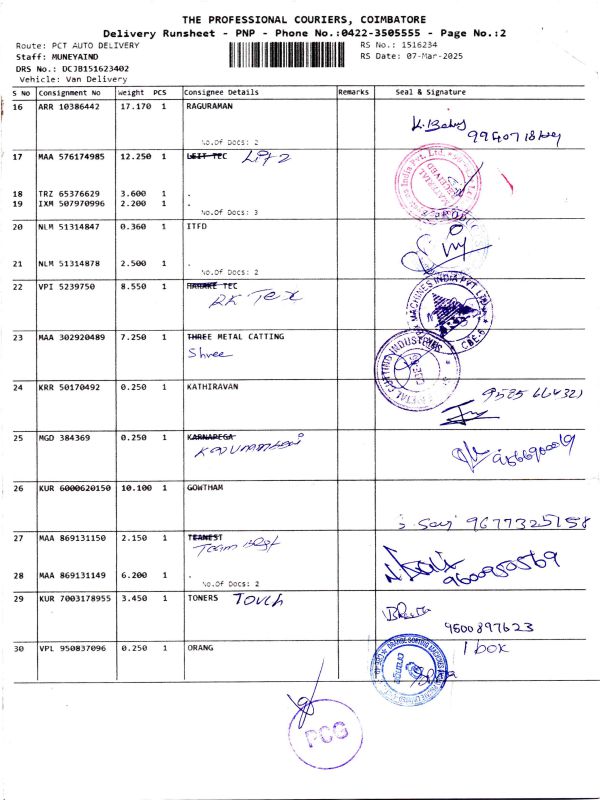 THE PROFESSIONAL COURIERS, COIMBATORE
Delivery Runsheet - PNP - Phone No.:0422-3505555 - Page No.:2
Route: PCT AUTO DELIVERY
RS No.: 1516234
Staff: MUNEYAIND
RS Date: 07-Mar-2025
DRS No.: DCJB151623402
Vehicle: Van Delivery
S No Consignment No Weight PCS Consignee Details Remarks Seal & Signature
16 ARR 10386442 17.170 1 RAGURAMAN
K. Babu
No.Of Docs: 2
17 MAA 576174985 12.250 1 LEIT TEC Lift 2
18 TRZ 65376629 3.600 1 .
19 IXM 507970996 2.200 1 .
No.Of Docs: 3
20 NLM 51314847 0.360 1 ITFD
21 NLM 51314878 2.500 1 .
No.Of Docs: 2
22 VPI 5239750 8.550 1 HARAKE TEC
RK Tex
MACHINES INDIA PVT LTD
CBE-6
23 MAA 302920489 7.250 1 THREE METAL CATTING
Shree
24 KRR 50170492 0.250 1 KATHIRAVAN
25 MGD 384369 0.250 1 KARNAPEGA
26 KUR 6000620150 10.100 1 GOWTHAM
9677325158
27 MAA 869131150 2.150 1 TEANEST
Team
28 MAA 869131149 6.200 1 .
9600950569
No.Of Docs: 2
29 KUR 7003178955 3.450 1 TONERS TOUCH
9500897623
30 VPL 950837096 0.250 1 ORANG
1 box
PCG